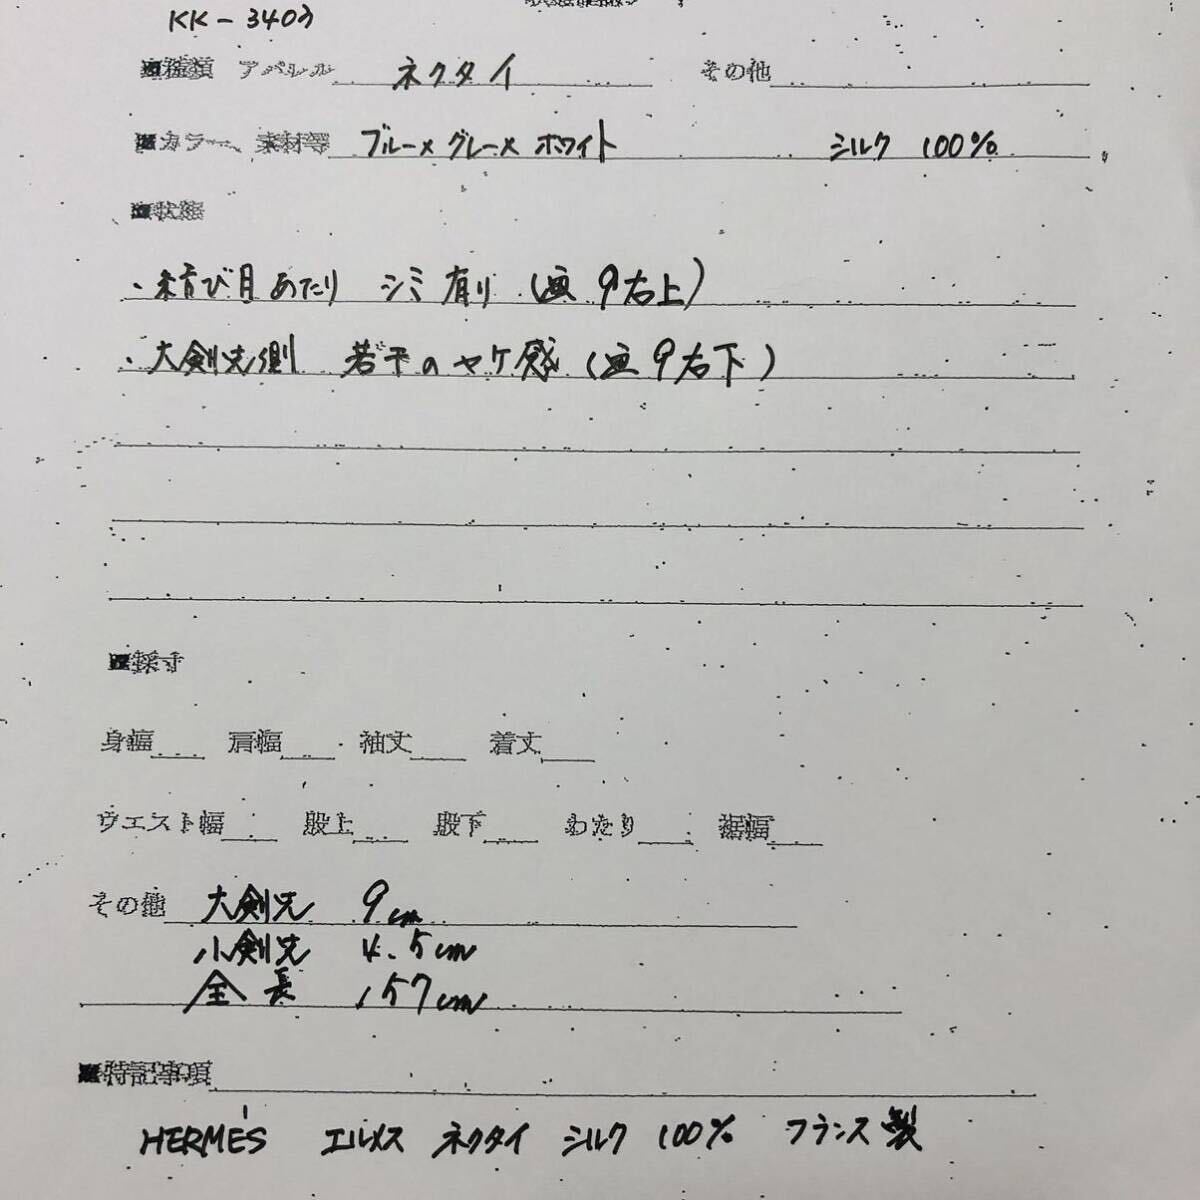 KK-3403
■種類 アパレル ネクタイ その他
■カラー、素材等 ブルー×グレー×ホワイト シルク 100%
■状態
・結び目あたり シミ有り (画9右上)
・大剣先側 若干のヤケ感 (画9右下)
■採寸
身幅 肩幅 袖丈 着丈
ウエスト幅 股上 股下 わたり 裾幅
その他 大剣先 9cm
小剣先 4.5cm
全長 157cm
■特記事項
HERMÈS エルメス ネクタイ シルク 100% フランス製